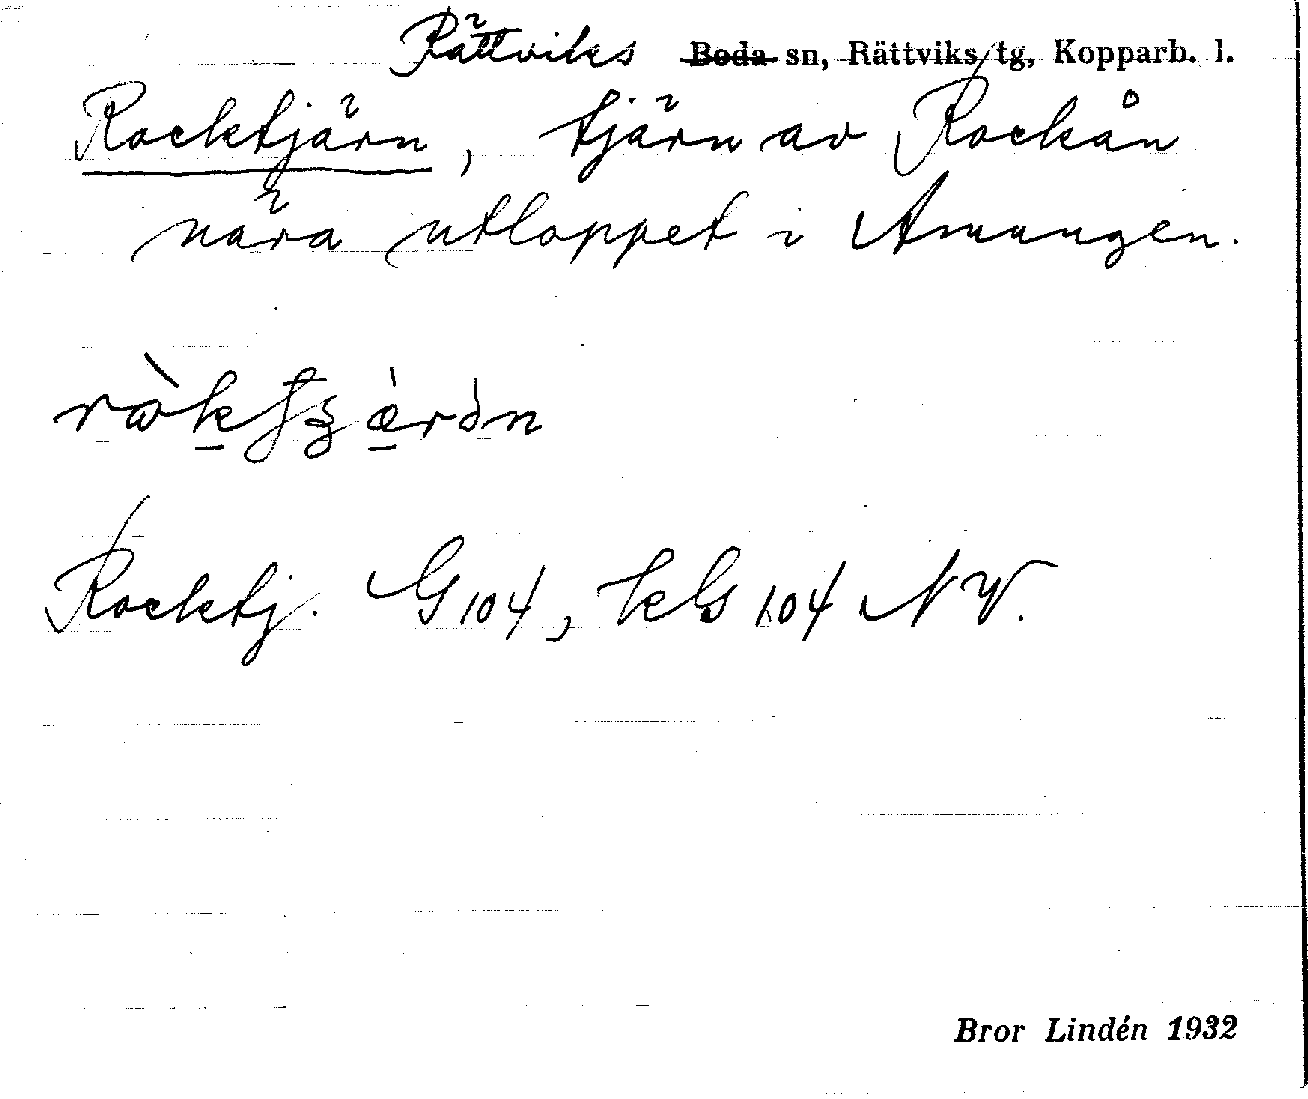 Rättviks Boda sn, Rättviks tg, Kopparb. l.
Rocktjärn, tjärn av Rockån
nära utloppet i Amungen.
Rocktj. G 104, kG 104 NV.
Bror Lindén 1932